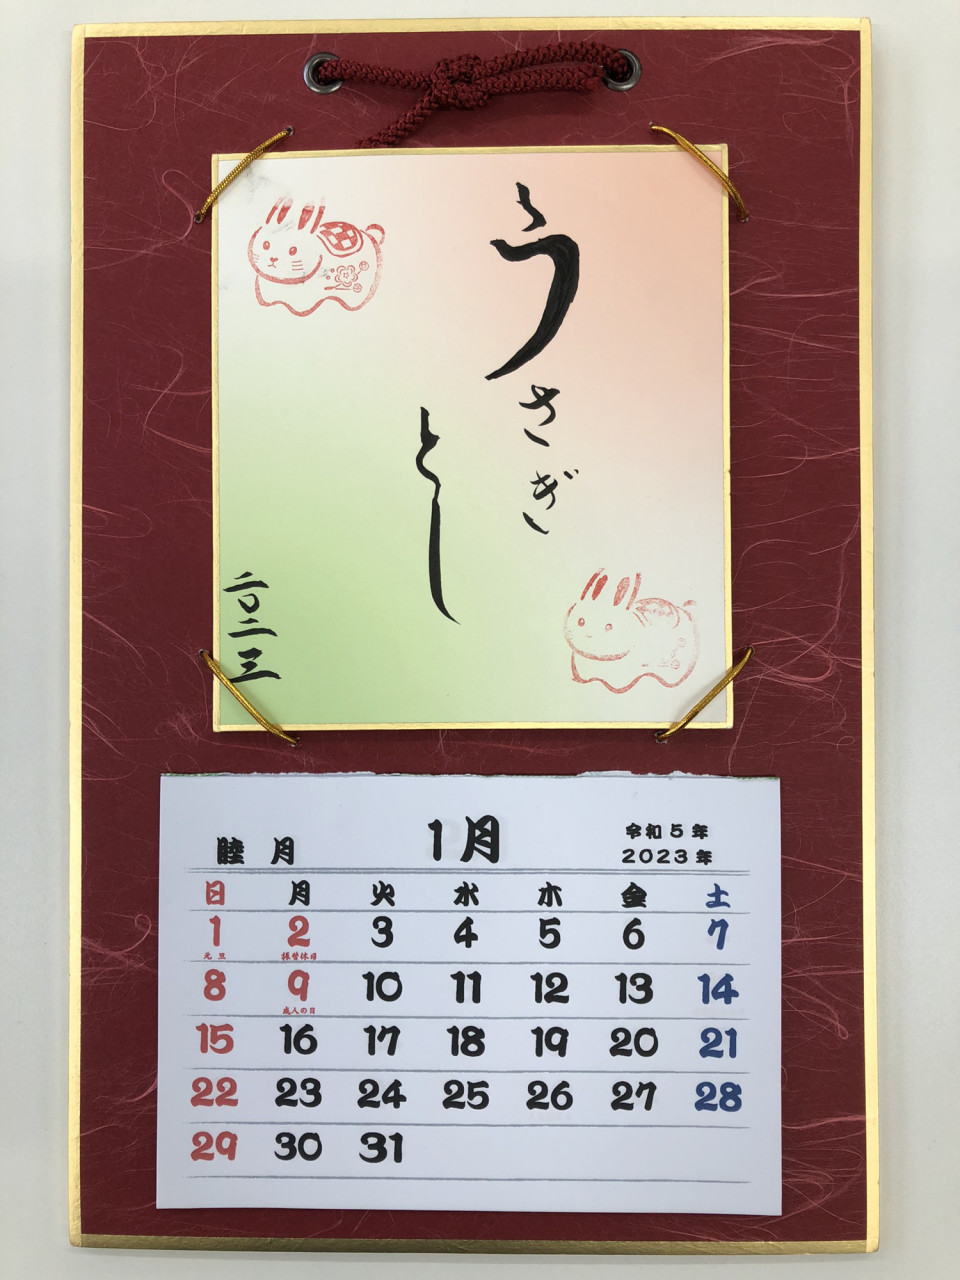 うさぎ
とし
二〇二三
睦月
1月
令和5年
2023年
日 月 火 水 木 金 土
1 2 3 4 5 6 7
元旦 振替休日
8 9 10 11 12 13 14
成人の日
15 16 17 18 19 20 21
22 23 24 25 26 27 28
29 30 31